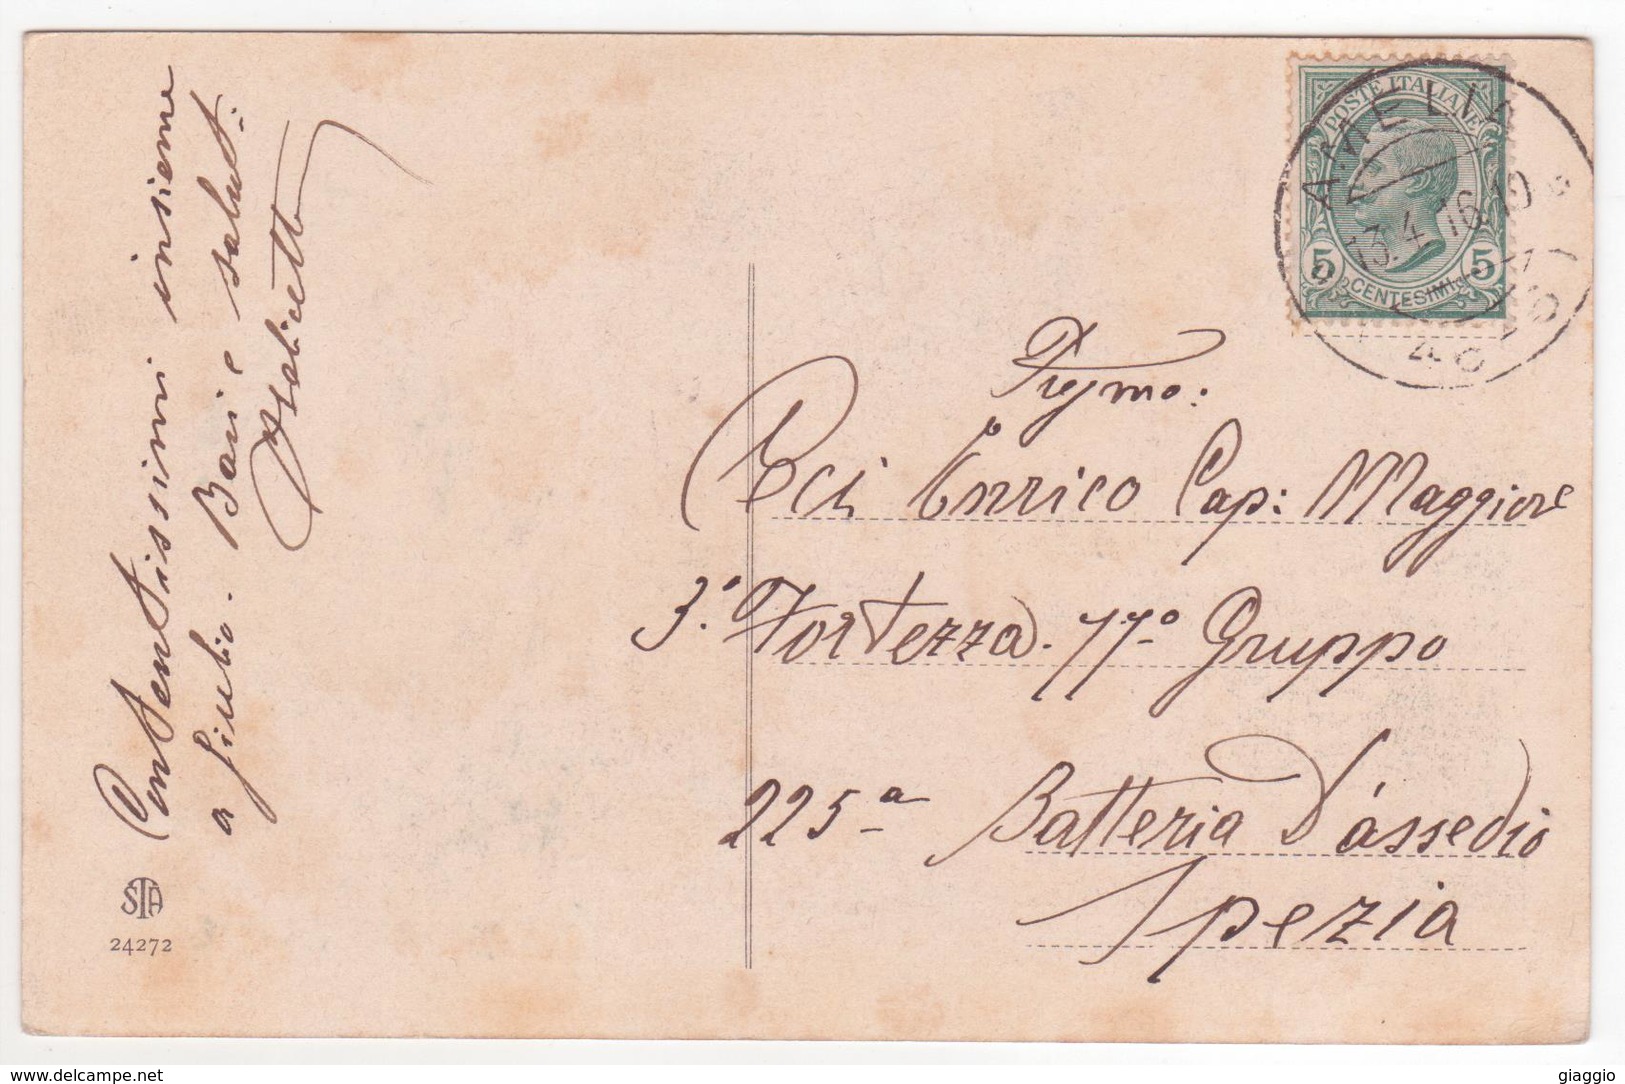 Contentissimi insieme
a Giulio. Baci e saluti:
STA
24272
POSTE ITALIANE
5 CENTESIMI 5
AMELIA
13.4.16.19
Pregmo:
Peci Enrico Cap: Maggiore
3.° Fortezza. 77° Gruppo
225ª Batteria d'assedio
Spezia
www.delcampe.net
giaggio